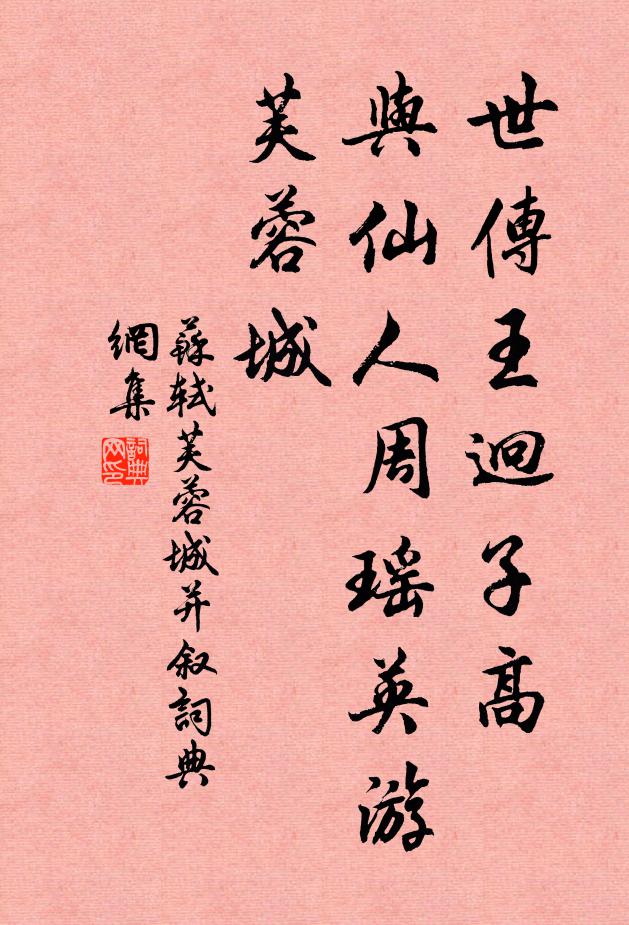 世傳王迥子高
與仙人周瑶英游
芙蓉城
蘇軾芙蓉城并叙詞典
網集
詞典
网印